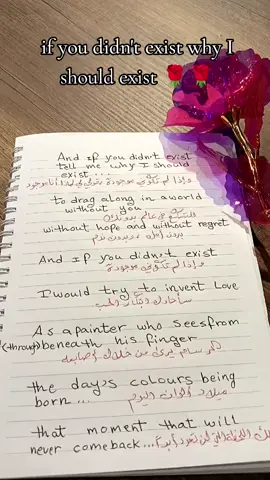 if you didn't exist why I
should exist 🌹🌹
And If you didn't exist
tell me why I should
exist ....
وإذا لم تكوني موجودة تقولي لي لماذا أنا موجود
to drag along in a world
without you
في عالم بدونك
without hope and without regret
بدون أمل وبدون ندم
And if you didn't exist
وإذا لم تكوني موجودة
I would try to invent Love
سأحاول اختراع الحب
As a painter who sees from
(through) beneath his finger
كرسام يرى من خلال أصابعه
the day's colours being
born ...
ميلاد ألوان اليوم
that moment that will
never comeback...